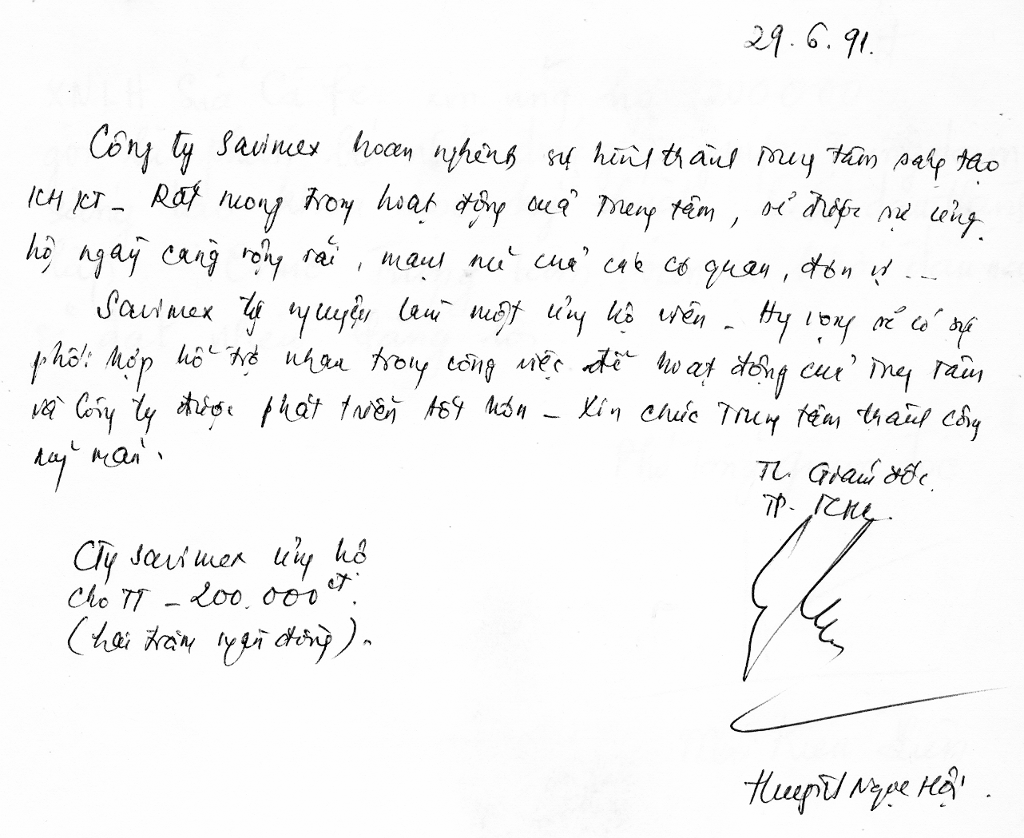 29.6.91.
Công ty Savimex hoan nghênh sự hình thành Trung tâm sáng tạo
KHKT - Rất mong trong hoạt động của Trung tâm, sẽ được sự ủng
hộ ngày càng rộng rãi, mạnh mẽ của các cơ quan, đơn vị ...
Savimex tự nguyện làm một ủng hộ viên - Hy vọng sẽ có sự
phối hợp hỗ trợ nhau trong công việc để hoạt động của Trung tâm
và Công ty được phát triển tốt hơn - Xin chúc Trung tâm thành công
mỹ mãn.
TL. Giám đốc.
TP. KHKT
Cty Savimex ủng hộ
cho TT - 200.000 đ.
(hai trăm ngàn đồng).
Huỳnh Ngọc Hội.